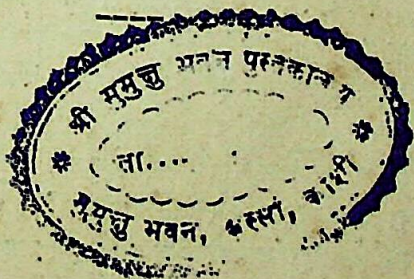 श्री मुमुक्षु भवन पुस्तकालय
ता....
मुमुक्षु भवन, अस्सी, काशी